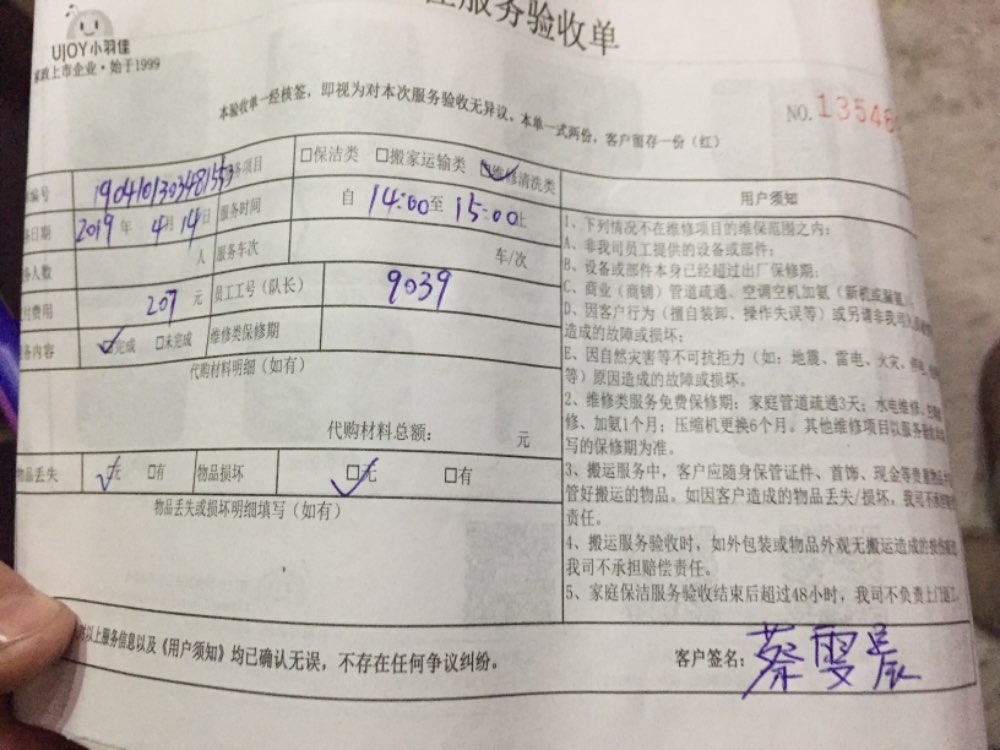 服务验收单
UJOY小羽佳
家政上市企业·始于1999
本验收单一经核签，即视为对本次服务验收无异议。本单一式两份，客户留存一份（红）
NO.13546
编号 1904101303481553 务项目 □保洁类 □搬家运输类 □维修清洗类
务日期 2019年4月14日 服务时间 自 14:00至 15:00止
务人数 人 服务车次 车/次
费用 207 元 员工工号（队长） 9039
务内容 □完成 □未完成 维修类保修期
代购材料明细（如有）
代购材料总额： 元
物品丢失 □无 □有 物品损坏 □无 □有
物品丢失或损坏明细填写（如有）
用户须知
1、下列情况不在维修项目的维保范围之内：
A、非我司员工提供的设备或部件；
B、设备或部件本身已经超过出厂保修期；
C、商业（商铺）管道疏通、空调空机加氨（新机或漏氟）
D、因客户行为（擅自装卸、操作失误等）或另请非我司人
造成的故障或损坏；
E、因自然灾害等不可抗拒力（如：地震、雷电、火灾、
等）原因造成的故障或损坏。
2、维修类服务免费保修期：家庭管道疏通3天；水电维修、
修、加氨1个月；压缩机更换6个月。其他维修项目以服务
写的保修期为准。
3、搬运服务中，客户应随身保管证件、首饰、现金等贵重物品
管好搬运的物品。如因客户造成的物品丢失/损坏，我司不承担
责任。
4、搬运服务验收时，如外包装或物品外观无搬运造成的
我司不承担赔偿责任。
5、家庭保洁服务验收结束后超过48小时，我司不负责上门返工。
以上服务信息以及《用户须知》均已确认无误，不存在任何争议纠纷。
客户签名：蔡雯晨